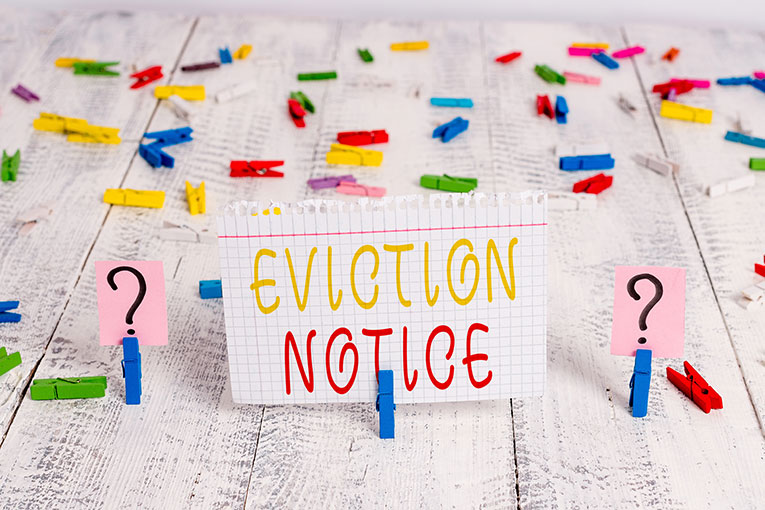 EVICTION
NOTICE
?
?